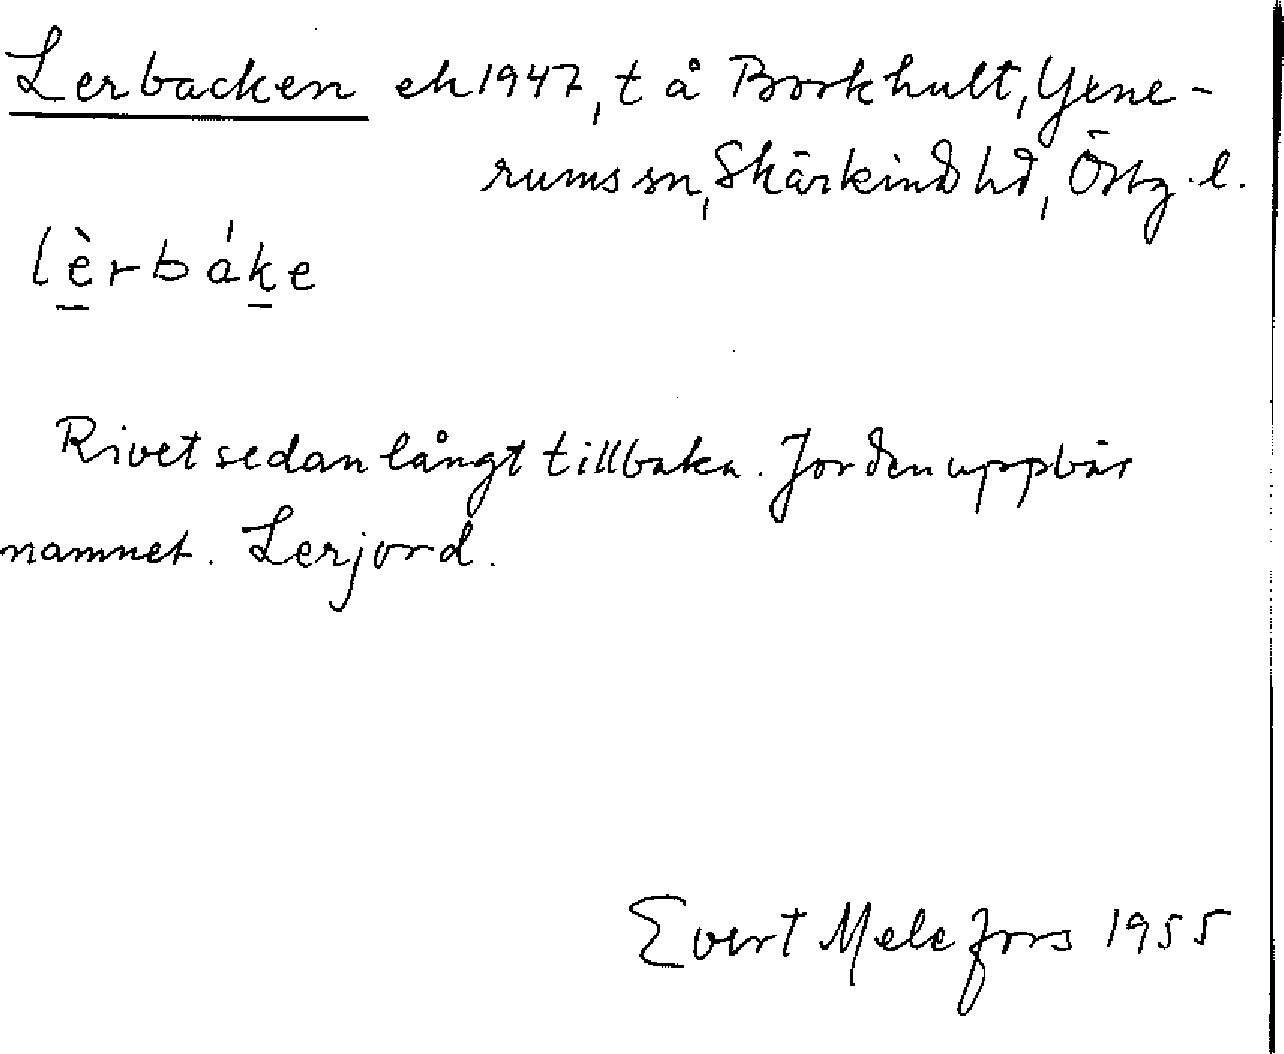 Lerbacken ek 1947, t å Borkhult, Yxne-
rums sn, Skärkind hd, Östg. l.
lèrbáke
Rivet sedan långt tillbaka. Jorden uppbär
namnet. Lerjord.
Evert Melefors 1955